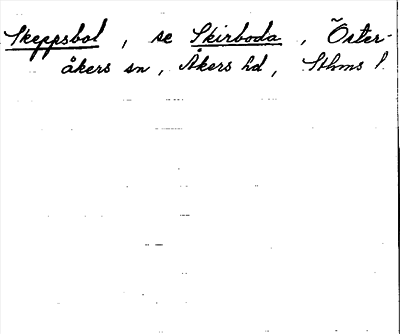 Skeppsbol, se Skirboda, Öster-
åkers sn, Åkers hd, Sthms l.